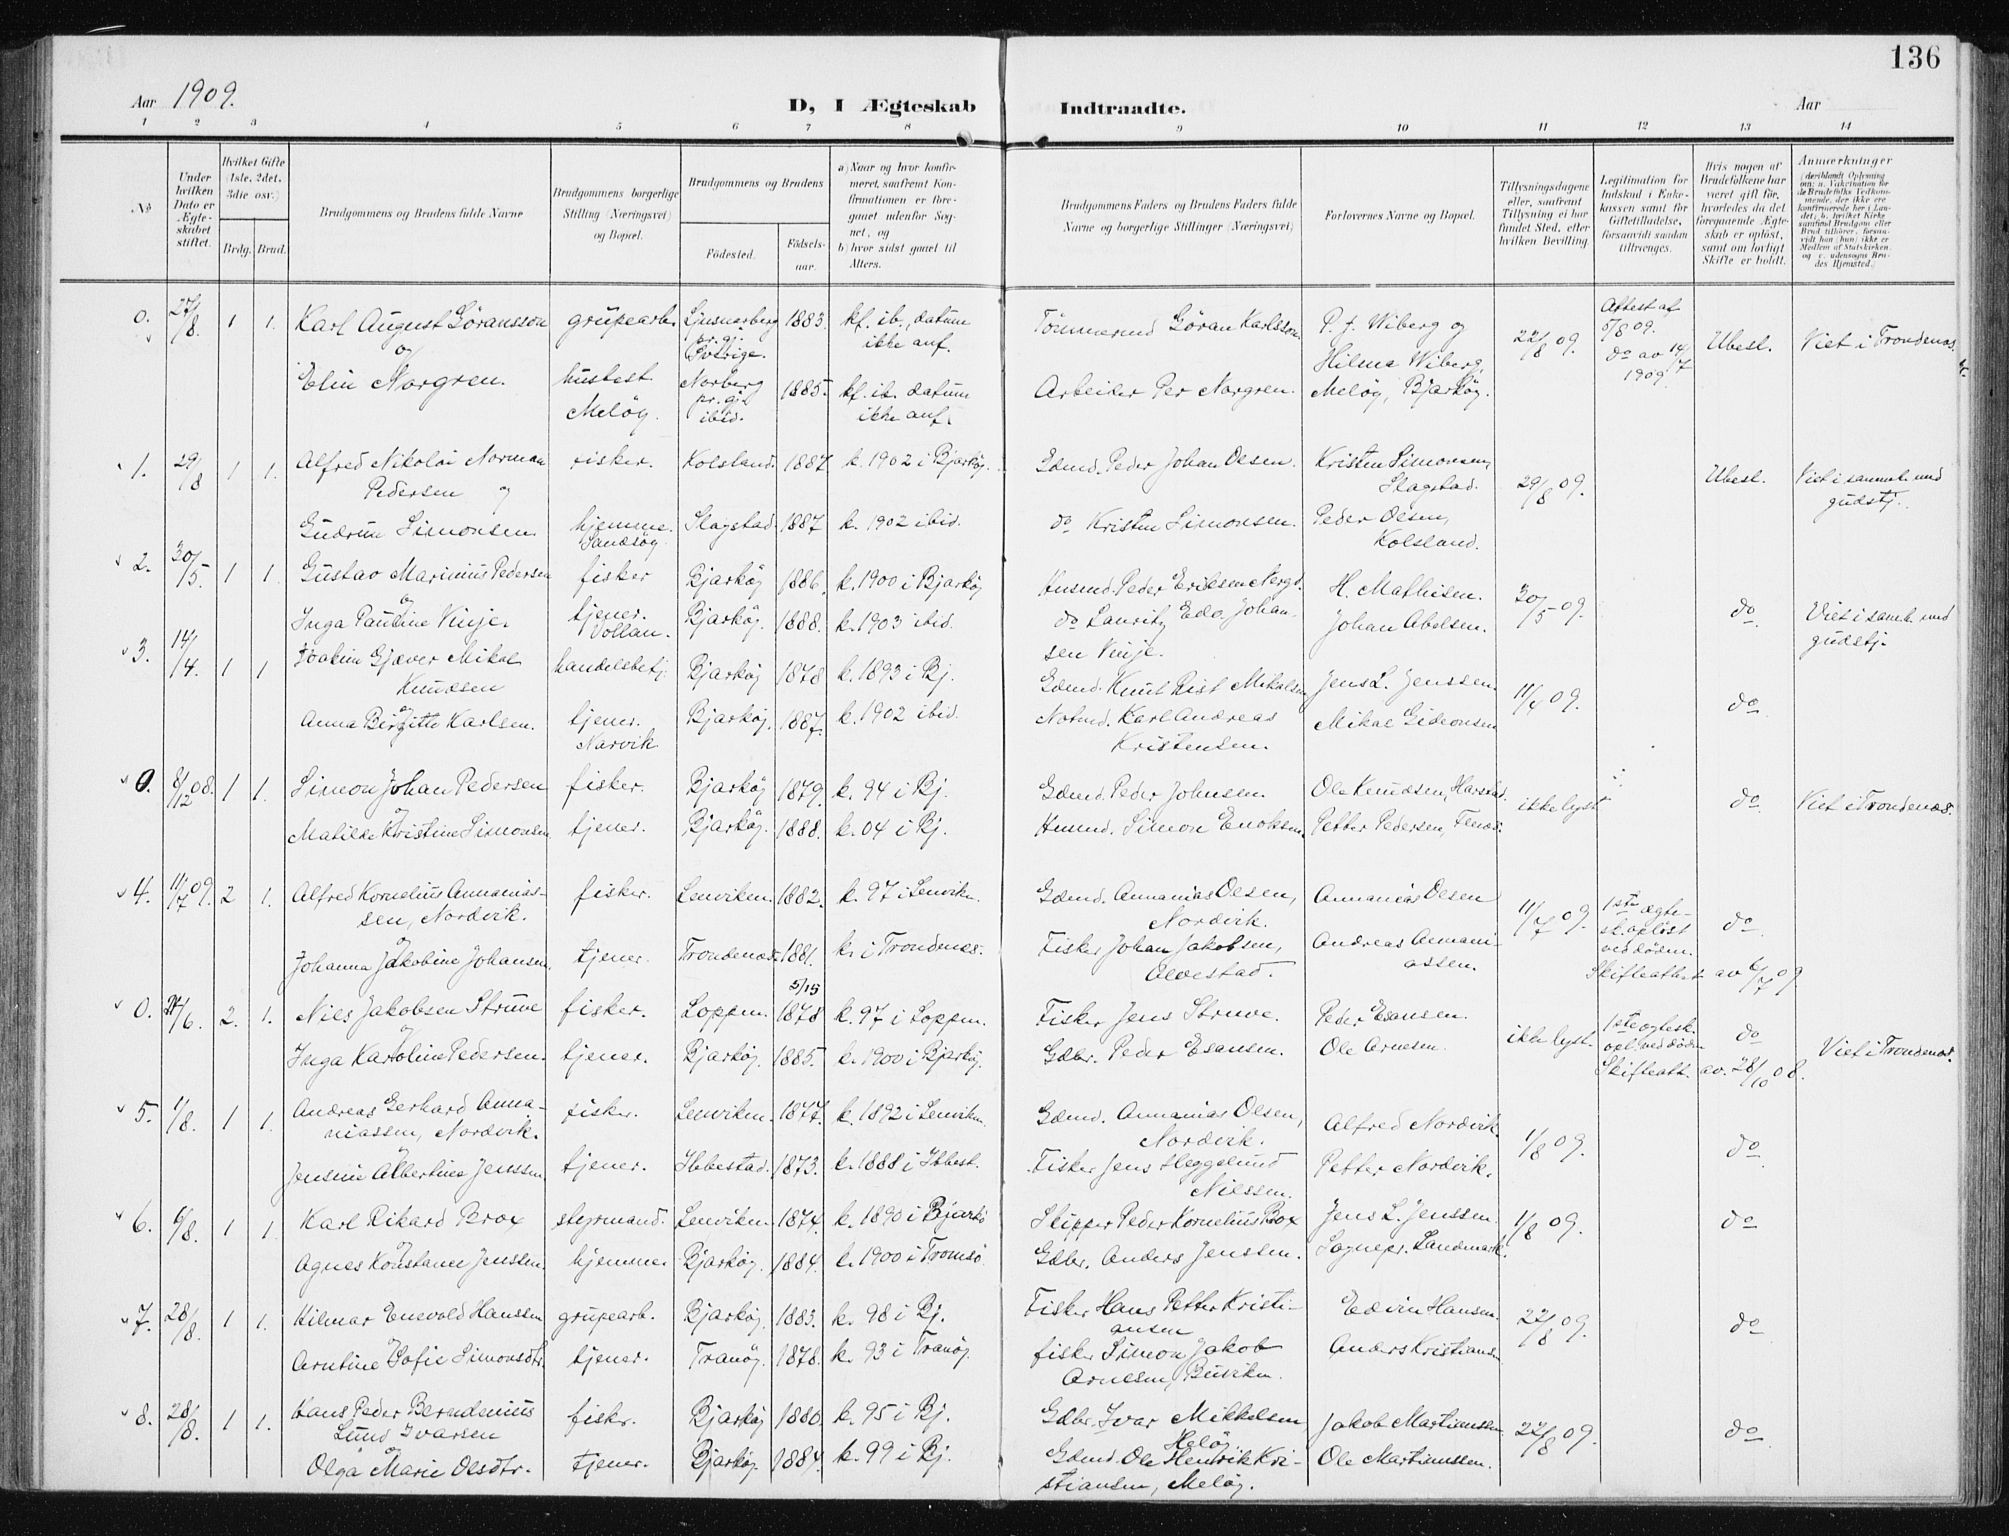 136
Aar 1909.
D, I Ægteskab Indtraadte.
Aar
1 2 3 4 5 6 7 8 9 10 11 12 13 14
No
Under hvilken Dato er Ægteskabet stiftet.
Hvilket Gifte (1ste, 2det, 3die osv.)
Brdg. Brud.
Brudgommens og Brudens fulde Navne
Brudgommens borgerlige Stilling (Næringsvei) og Bopæl.
Brudgommens og Brudens
Fødested. Fødselsaar.
a) Naar og hvor konfirmeret, saafremt Konfirmationen er foregaaet udenfor Sognet, og
b) hvor sidst gaaet til Alters.
Brudgommens Faders og Brudens Faders fulde Navne og borgerlige Stillinger (Næringsvei)
Forlovernes Navne og Bopæl.
Tillysningsdagene eller, saafremt Tillysning ei har fundet Sted, efter hvilken Bevilling
Legitimation for Indskud i Enkekassen samt for Giftetilladelse, forsaavidt saadan tiltrænges.
Hvis nogen af Brudefolkene har været gift før, hvorledes da det foregaaende Ægteskab er opløst, samt om lovligt Skifte er holdt.
Anmærkninger
0. 27/8. 1 1. Karl August Göransson grubearb. Ljusnarberg 1883. kf. ib., datum ikke anf. Tömmermd Göran Karlsson P. J. Wiberg og 22/8 09. Attest af 5/8 09. Ubesl. Viet i Trondenæs.
og
Elin Norgren. hustest. Meløy. Norberg pr. gj. ibid. 1885. kf. ib. datum ikke anf. Arbeider Per Norgren. Hilma Wiberg, Meløy, Bjarkøy. do av 14/7 1909.
1. 29/8 1 1. Alfred Nikolai Norman Pedersen og fisker. Kolsland. 1887 k. 1902 i Bjarkøy. Gdmd. Peder Johan Olsen. Kristen Simonsen, Slagstad. 29/8 09. Ubesl. Viet i sammh. med gudstj.
Gudrun Simonsen hjemme. Sandsøy. Slagstad. 1887 k. 1902 ibid. do Kristen Simonsen. Peder Olsen, Kolsland.
2. 30/5. 1 1. Gustav Marinius Pedersen fisker Bjarkøy 1886. k. 1900 i Bjarkøy Husmd. Peder Eriksen Nergd. H. Mathisen. 30/5 09. do Viet i samh. med gudstj.
og
Inga Pauline Vinje. tjener. Vollan. Bjarkøy. 1888. k. 1903 ibid. do Lauritz Edv. Johansen Vinje. Johan Abelsen.
3. 14/4. 1 1 Joakim Gjæver Mikal Knudsen handelsbetj. Bjarkøy 1878 k. 1893 i Bj. Gdmd. Knut Rist Mikalsen Jens L. Jenssen. 11/4 09. do
og
Anna Birgitte Karlsen. tjener. Narvik Bjarkøy. 1887. k. 1902 ibid. Notmd. Karl Andreas Kristensen. Mikal Gideonsen
0. 8/12 08. 1 1. Simon Johan Pedersen fisker. Bjarkøy 1879. k. 94 i Bj. Gdmd. Peder Johnsen. Ole Knudsen, Harstad. ikke lyst do Viet i Trondenæs.
og
Matilde Kristine Simonsen tjener. Bjarkøy. 1888. k. 04 i Bj. Husmd. Simon Enoksen. Petter Pedersen, Fenes.
4. 11/7 09. 2 1. Alfred Kornelius Annaniassen, Nordvik. fisker. Lenviken. 1882. k. 97 i Lenvikn. Gdmd. Annanias Olsen, Nordvik. Annanias Olsen 11/7 09. 1ste ægtesk. opløst ved døden. Skifteattest av 6/7 09 do
og
Johanna Jakobine Johansen. tjener. Trondenæs. 1881. k. i Trondenæs. Fisker Johan Jakobsen, Olvestad. Andreas Annaniassen.
0. 24/6. 2. 1. Nils Jakobsen Struve fisker. Loppen. 5/15 1878 k. 97 i Loppen. Fisker Jens Struve. Peder Esansen. ikke lyst. 1ste egtesk. opl. ved døden Skifteatt. av. 28/10 08. do Viet i Trondenæs.
og
Inga Karoline Pedersen. tjener. Bjarkøy. 1885. k. 1900 i Bjarkøy. Gdbr. Peder Esansen. Ole Arnesen.
5. 1/8. 1 1. Andreas Gerhard Annaniassen, Nordvik. fisker. Lenviken. 1877. k. 1892 i Lenviken. Gdmd. Annanias Olsen, Nordvik. Alfred Nordvik. 1/8 09. do
og
Jensine Albertine Jenssen. tjener. Ibbestad. 1873. k. 1888 i Ibbest. Fisker Jens Heggelund Nilssen. Petter Nordvik.
6. 6/8. 1 1. Karl Rikard Brox styrmand. Lenviken. 1874. k. 1890 i Bjarkø Skipper Peder Kornelius Brox Jens L. Jenssen. 1/8 09. do
og
Agnes Konstance Jenssen. hjemme. Bjarkøy. 1884. k. 1900 i Tromsö Gdbr. Anders Jenssen. Sognepr. Landmark.
7. 28/8. 1 1. Hilmar Enevold Hanssen grubearb. Bjarkøy. 1883. k. 98 i Bj. Fisker Hans Petter Kristiansen Edvin Hansen. 22/8 09. do
Arntine Sofie Simonsdtr. tjener. Tranøy. 1878. k. 93 i Tranøy. fisker Simon Jakob Arnesen, Buviken. Anders Kristiansen
8. 28/8. 1 1. Hans Peder Berndenius Lund Ivarsen fiskr. Bjarkøy 1880. k. 95 i Bj. Gdbr. Ivar Mikkelsen, Meløy Jakob Martinussen. 22/8 09. do
og
Olga Marie Olsdtr. tjener. Bjarkøy. 1884. k. 99 i Bj. Gdmd. Ole Henrik Kristiansen, Meløy. Ole Martinussen.